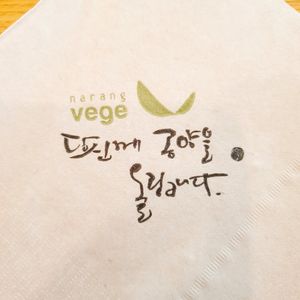 narang
vege
당신께 공양을
올립니다.